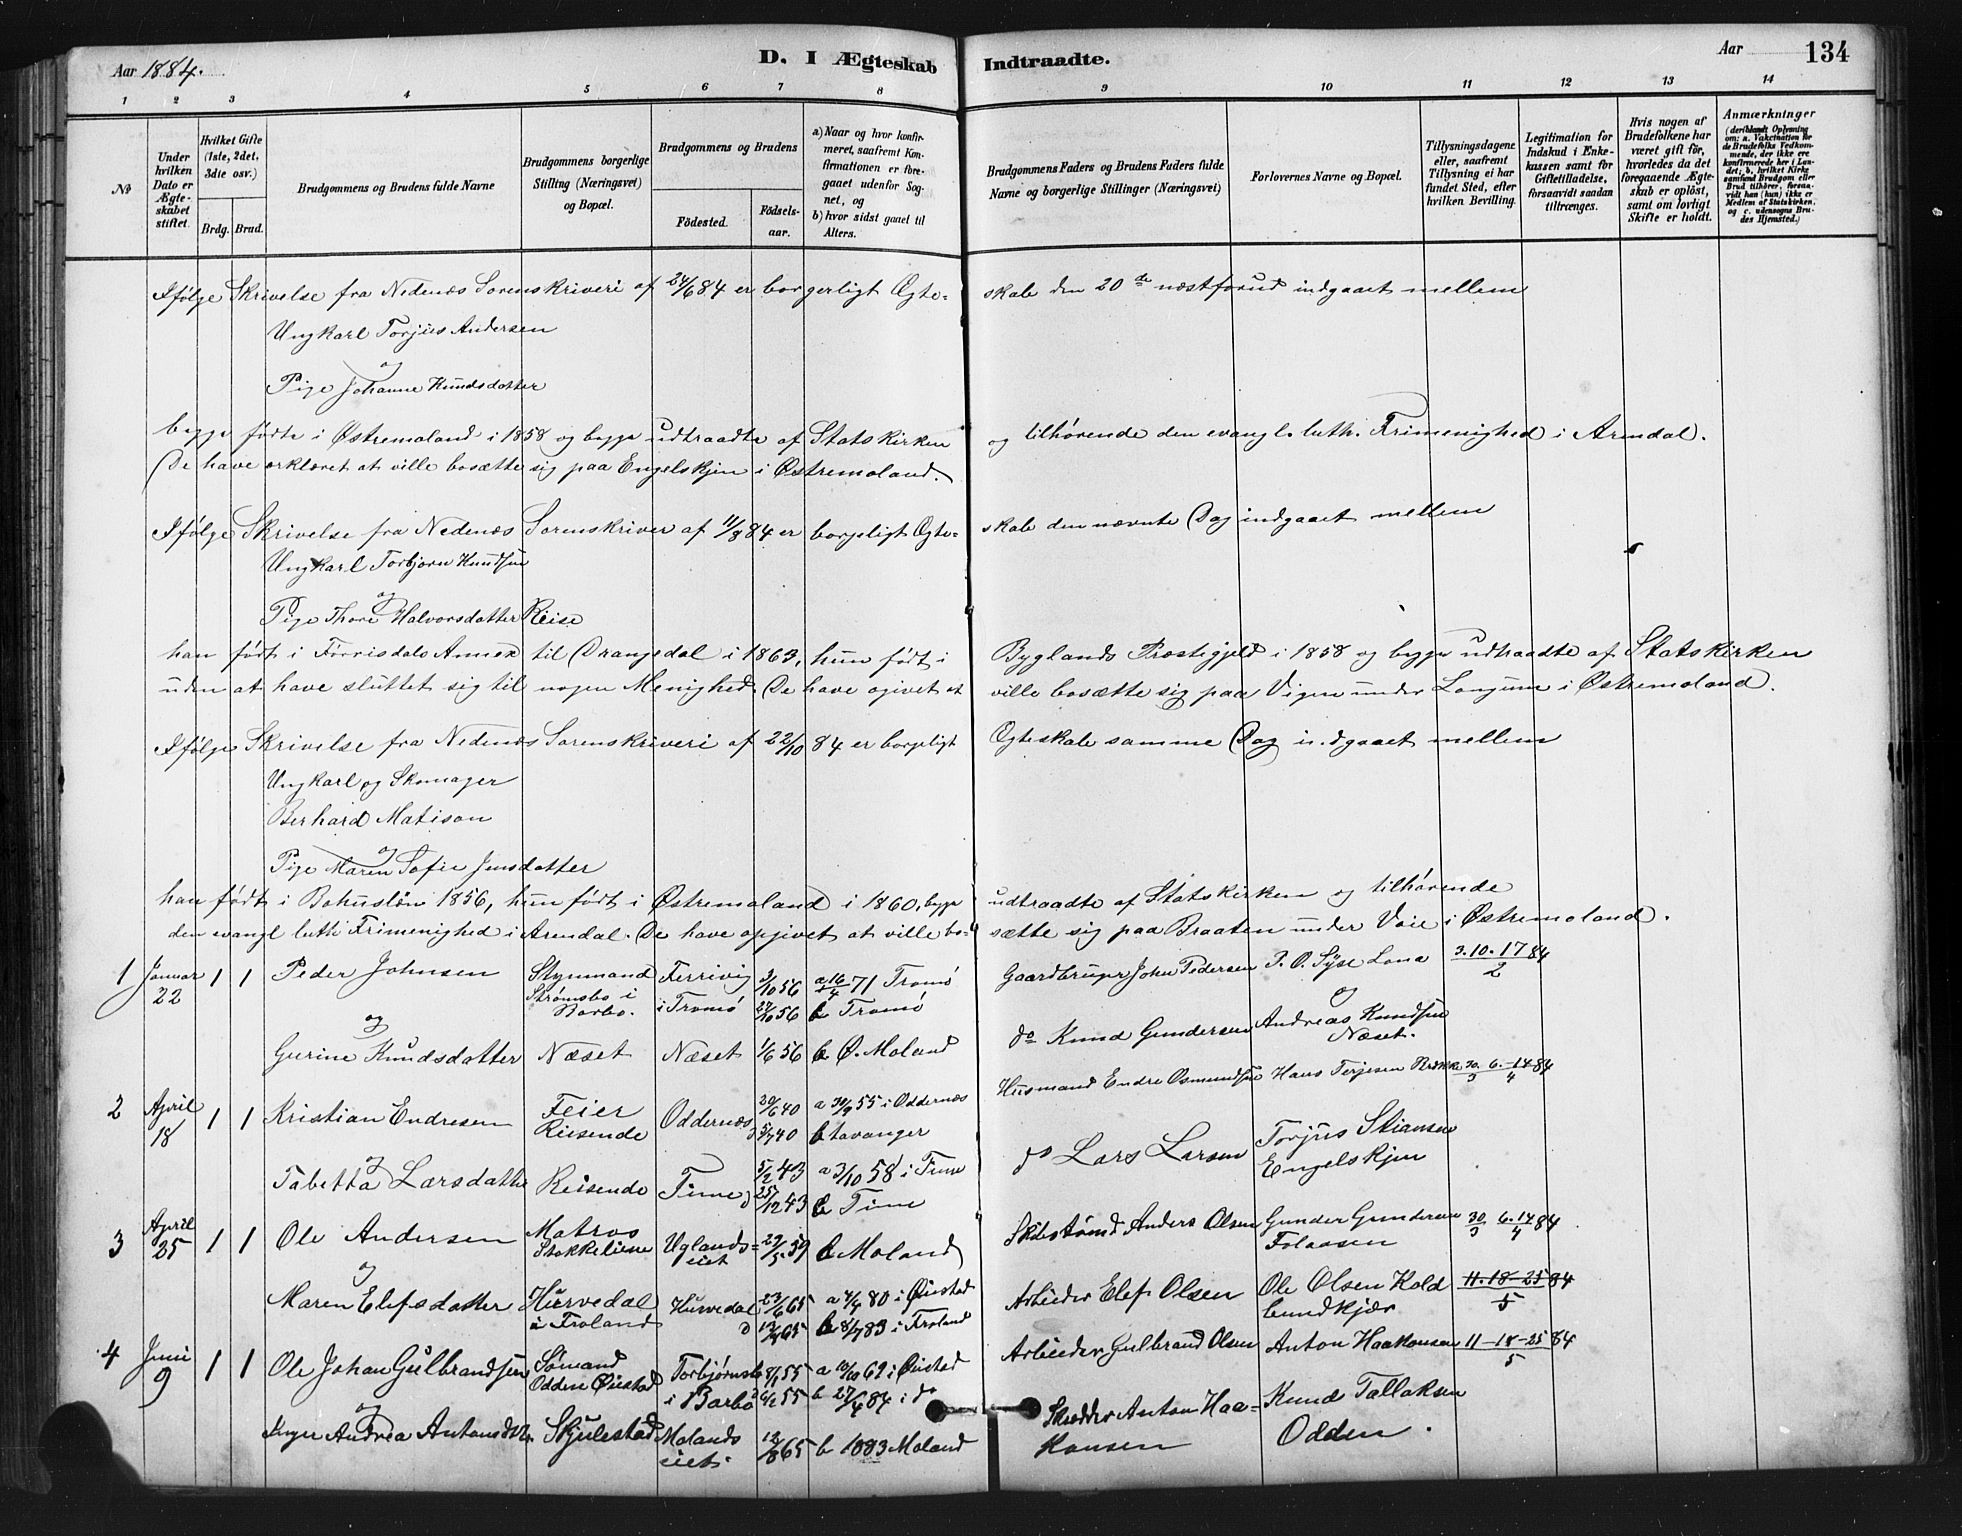 Aar 1884.
D. I Ægteskab Indtraadte.
Aar
134
1 2 3 4 5 6 7 8 9 10 11 12 13 14
No
Under hvilken Dato er Ægteskabet stiftet.
Hvilket Gifte (1ste, 2det, 3die osv.)
Brdg. Brud.
Brudgommens og Brudens fulde Navne
Brudgommens borgerlige Stilling (Næringsvei) og Bopæl.
Brudgommens og Brudens
Födested.
Födsels-aar.
a) Naar og hvor konfirmeret, saafremt Konfirmationen er foregaaet udenfor Sognet, og
b) hvor sidst gaaet til Alters.
Brudgommens Faders og Brudens Faders fulde Navne og borgerlige Stillinger (Næringsvei)
Forlovernes Navne og Bopæl.
Tillysningsdagene eller, saafremt Tillysning ei har fundet Sted, efter hvilken Bevilling.
Legitimation for Indskud i Enkekassen samt for Giftetilladelse, forsaavidt saadan tiltrænges.
Hvis nogen af Brudefolkene har været gift för, hvorledes da det foregaaende Ægteskab er oplöst, samt om lovligt Skifte er holdt.
Anmærkninger
(deriblandt Oplysning om: a. Vakcination for de Brudefolks Vedkommende, der ikke ere konfirmerede her i Landet; b. hvilket Kirkesamfund Brudgom eller Brud tilhörer, forsaavidt han (hun) ikke er Medlem af Statskirken, og c. udensogns Brudes Hjemsted.)
Ifølge Skrivelse fra Nedenæs Sorenskriveri af 24/6 84 er borgerligt Ægte= skab den 20de næstforud indgaaet mellem
Ungkarl Torjus Andersen
og
Pige Johanne Knudsdatter
begge fødte i Østremoland i 1858 og begge udtraadte af Statskirken og tilhørende den evangl. luth. Frimenighed i Arendal.
De have erklæret at ville bosætte sig paa Engelskjen i Østremoland.
Ifølge Skrivelse fra Nedenæs Sorenskriver af 11/8 84 er borgeligt Ægte= skab den nævnte Dag indgaaet mellem
Ungkarl Torbjørn Knudsen
og
Pige Thore Halvorsdatter Reise
han født i Førrisdals Annex til Drangedal i 1863, hun født i Byglands Præstegjeld i 1858 og begge udtraadte af Statskirken
uden at have sluttet sig til nogen Menighed De have ogivet at ville bosætte sig paa Vigen under Langum i Østremoland.
Ifølge Skrivelse fra Nedenæs Sorenskriveri af 22/10 84 er borgeligt Ægteskab samme Dag indgaaet mellem
Ungkarl og Skomager
Berhard Matison
og
Pige Maren Sofie Jensdatter
han født i Bohuslän 1856, hun født i Østremoland i 1860, begge udtraadte af Statskirken og tilhørende
den evangl luth Frimenighed i Arendal. De have opgivet at ville bo- sætte sig paa Braaten under Voie i Østremoland.
1 Januar 22 1 1 Peder Johnsen Styrmand Strømsbo i Barbo. Færvig i Tromø 3/10 56 27/10 56 a 16/4 71 Tromø b Tromø Gaardbruger John Pedersen P. O. Syse Lona 3. 10. 17/2 84
og
og
Gurine Knudsdatter Næset Næset 1/6 56 b Ø. Moland do Knud Gundersen Andreas Knudsen Næset.
2 April 18 1 1 Kristian Endresen Feier Reisende Oddernæs 20/6 40 5/7 40 a 30/9 55 i Oddernæs b tavanger Husmand Endre Osmundsen Hans Terjesen Brække 30/3 6.-14/4 84
og
Tabetta Larsdatter Reisende Time 5/2 43 25/12 43 a 3/10 58 i Time b Time do Lars Larsen Torjus Stiansen Engelskjen
3 April 25 1 1 Ole Andersen Matros Stokkeliene Uglands= eiet 29/5 59 b Moland Anders Olsen Gunder Gundersen Folaasen 30/3 6.14/4 84
og
Maren Elefsdatter Hurvedal i Froland Hurvedal 23/6 65 a 4/4 80 i Øiestad b 8/7 83 i Froland Arbeider Elef Olsen Ole Olsen Kold 11. 18-25/5 84
4 Juni 9 1 1 Ole Johan Gulbrandsen Sømand Odden Øiestad Torbjørnsb i Barbo 8/1 55 a 10/10 69 i Øiestad b 27/4 84 i do Arbeider Gulbrand Olsen Anton Haakonsen 11-18-25/5 84
og
Inger Andrea Antonsdtr. Skjulestad Molands eiet 12/8 65 b 1883 Moland Skrædder Anton Haa= konsen Knud Tallaksen Odden.